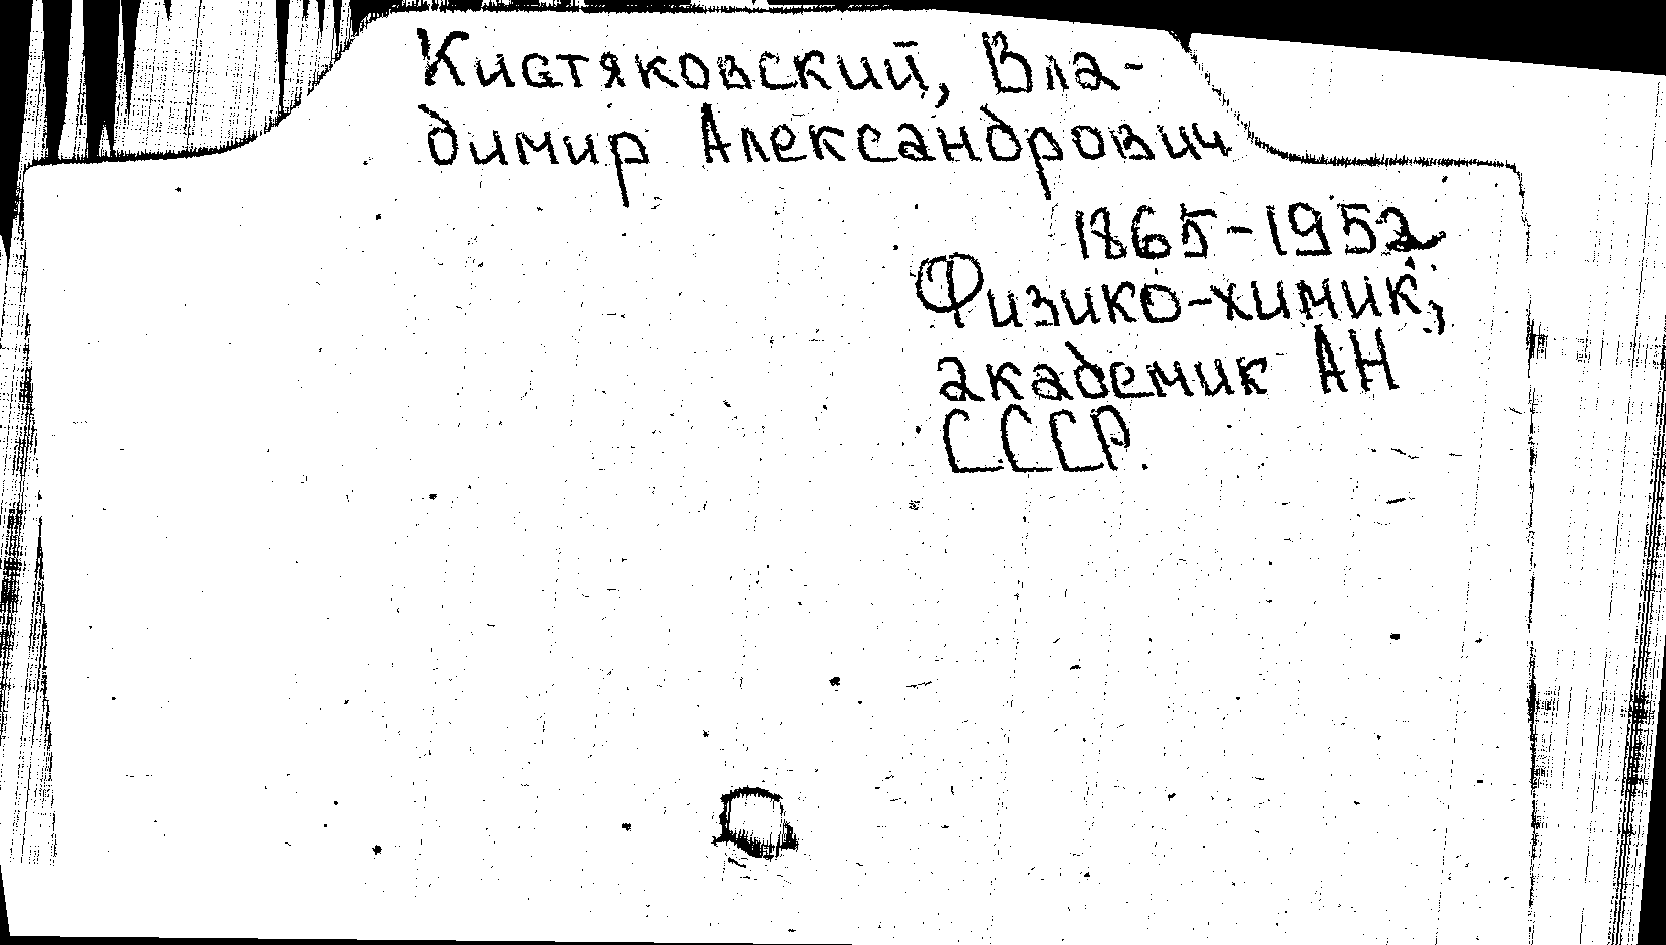 Кистяковский, Вла-
димир Александрович
1865-1952
Физико-химик,
академик АН
СССР.